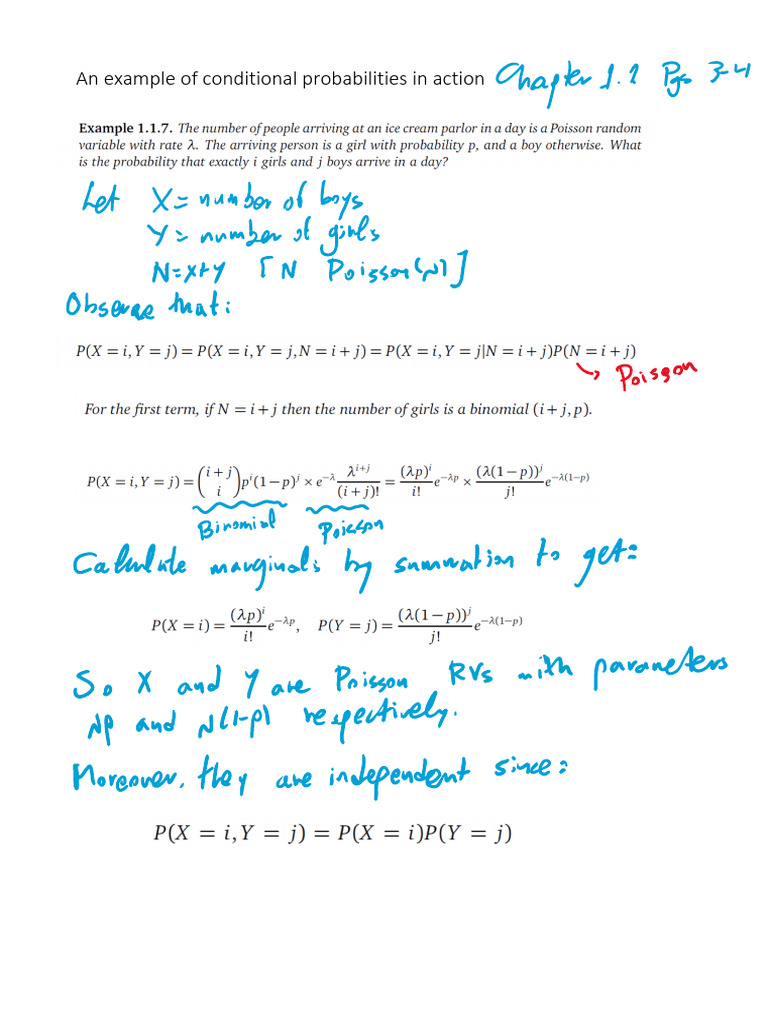 An example of conditional probabilities in action Chapter 1.1 Pgs 3-4
Example 1.1.7. The number of people arriving at an ice cream parlor in a day is a Poisson random
variable with rate λ. The arriving person is a girl with probability p, and a boy otherwise. What
is the probability that exactly i girls and j boys arrive in a day?
Let X = number of boys
Y = number of girls
N = X+Y [N Poisson(λ)]
Observe that:
P(X = i, Y = j) = P(X = i, Y = j, N = i + j) = P(X = i, Y = j|N = i + j)P(N = i + j)
↳ Poisson
For the first term, if N = i + j then the number of girls is a binomial (i + j, p).
P(X = i, Y = j) = \binom{i+j}{i} p^i (1 − p)^j × e^{−λ} \frac{λ^{i+j}}{(i + j)!} = \frac{(λp)^i}{i!} e^{−λp} × \frac{(λ(1 − p))^j}{j!} e^{−λ(1−p)}
Binomial Poisson
Calculate marginals by summation to get:
P(X = i) = \frac{(λp)^i}{i!} e^{−λp}, P(Y = j) = \frac{(λ(1 − p))^j}{j!} e^{−λ(1−p)}
So X and Y are Poisson RVs with parameters
λp and λ(1-p) respectively.
Moreover, they are independent since:
P(X = i, Y = j) = P(X = i)P(Y = j)